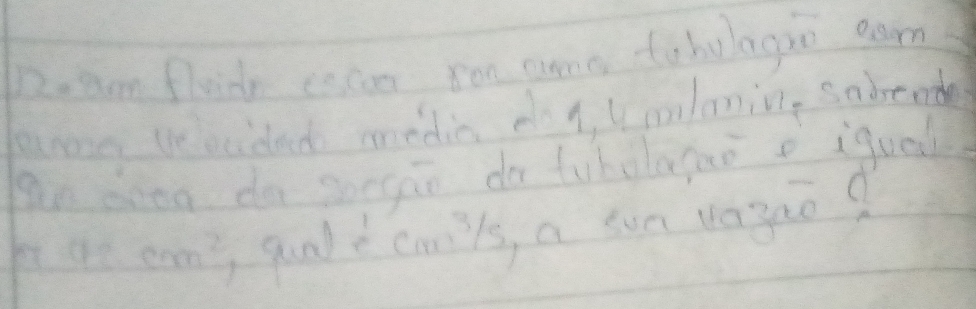 12. Um fluido escoa por uma tubulação com
uma velocidade média de 1,4 cm/min, sabendo
que área da secção da tubulação é igual
a 42 cm², qual é cm³/s, a sua vazão?